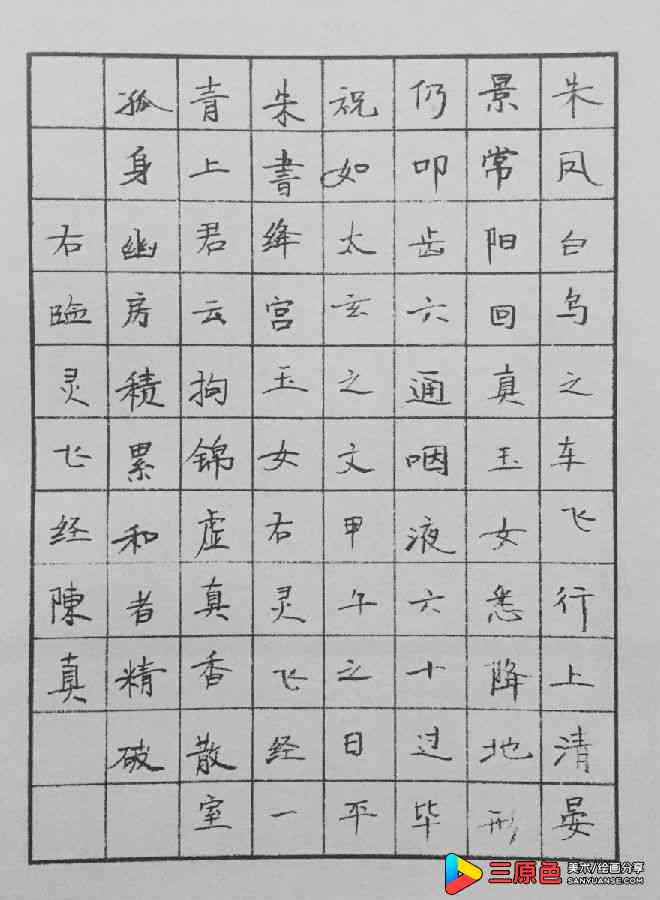 朱凤白乌之车飞行上清晏
景常阳回真玉女悉降地形
仍叩齿六通咽液六十过毕
祝如太玄之文甲午之日平
朱書绛宫玉女右灵飞经一
青上君云拘锦虚真香散室
孤身幽房積累和者精破
右臨灵飞经陳真
三原色 美术/绘画分享
SANYUANSE.COM